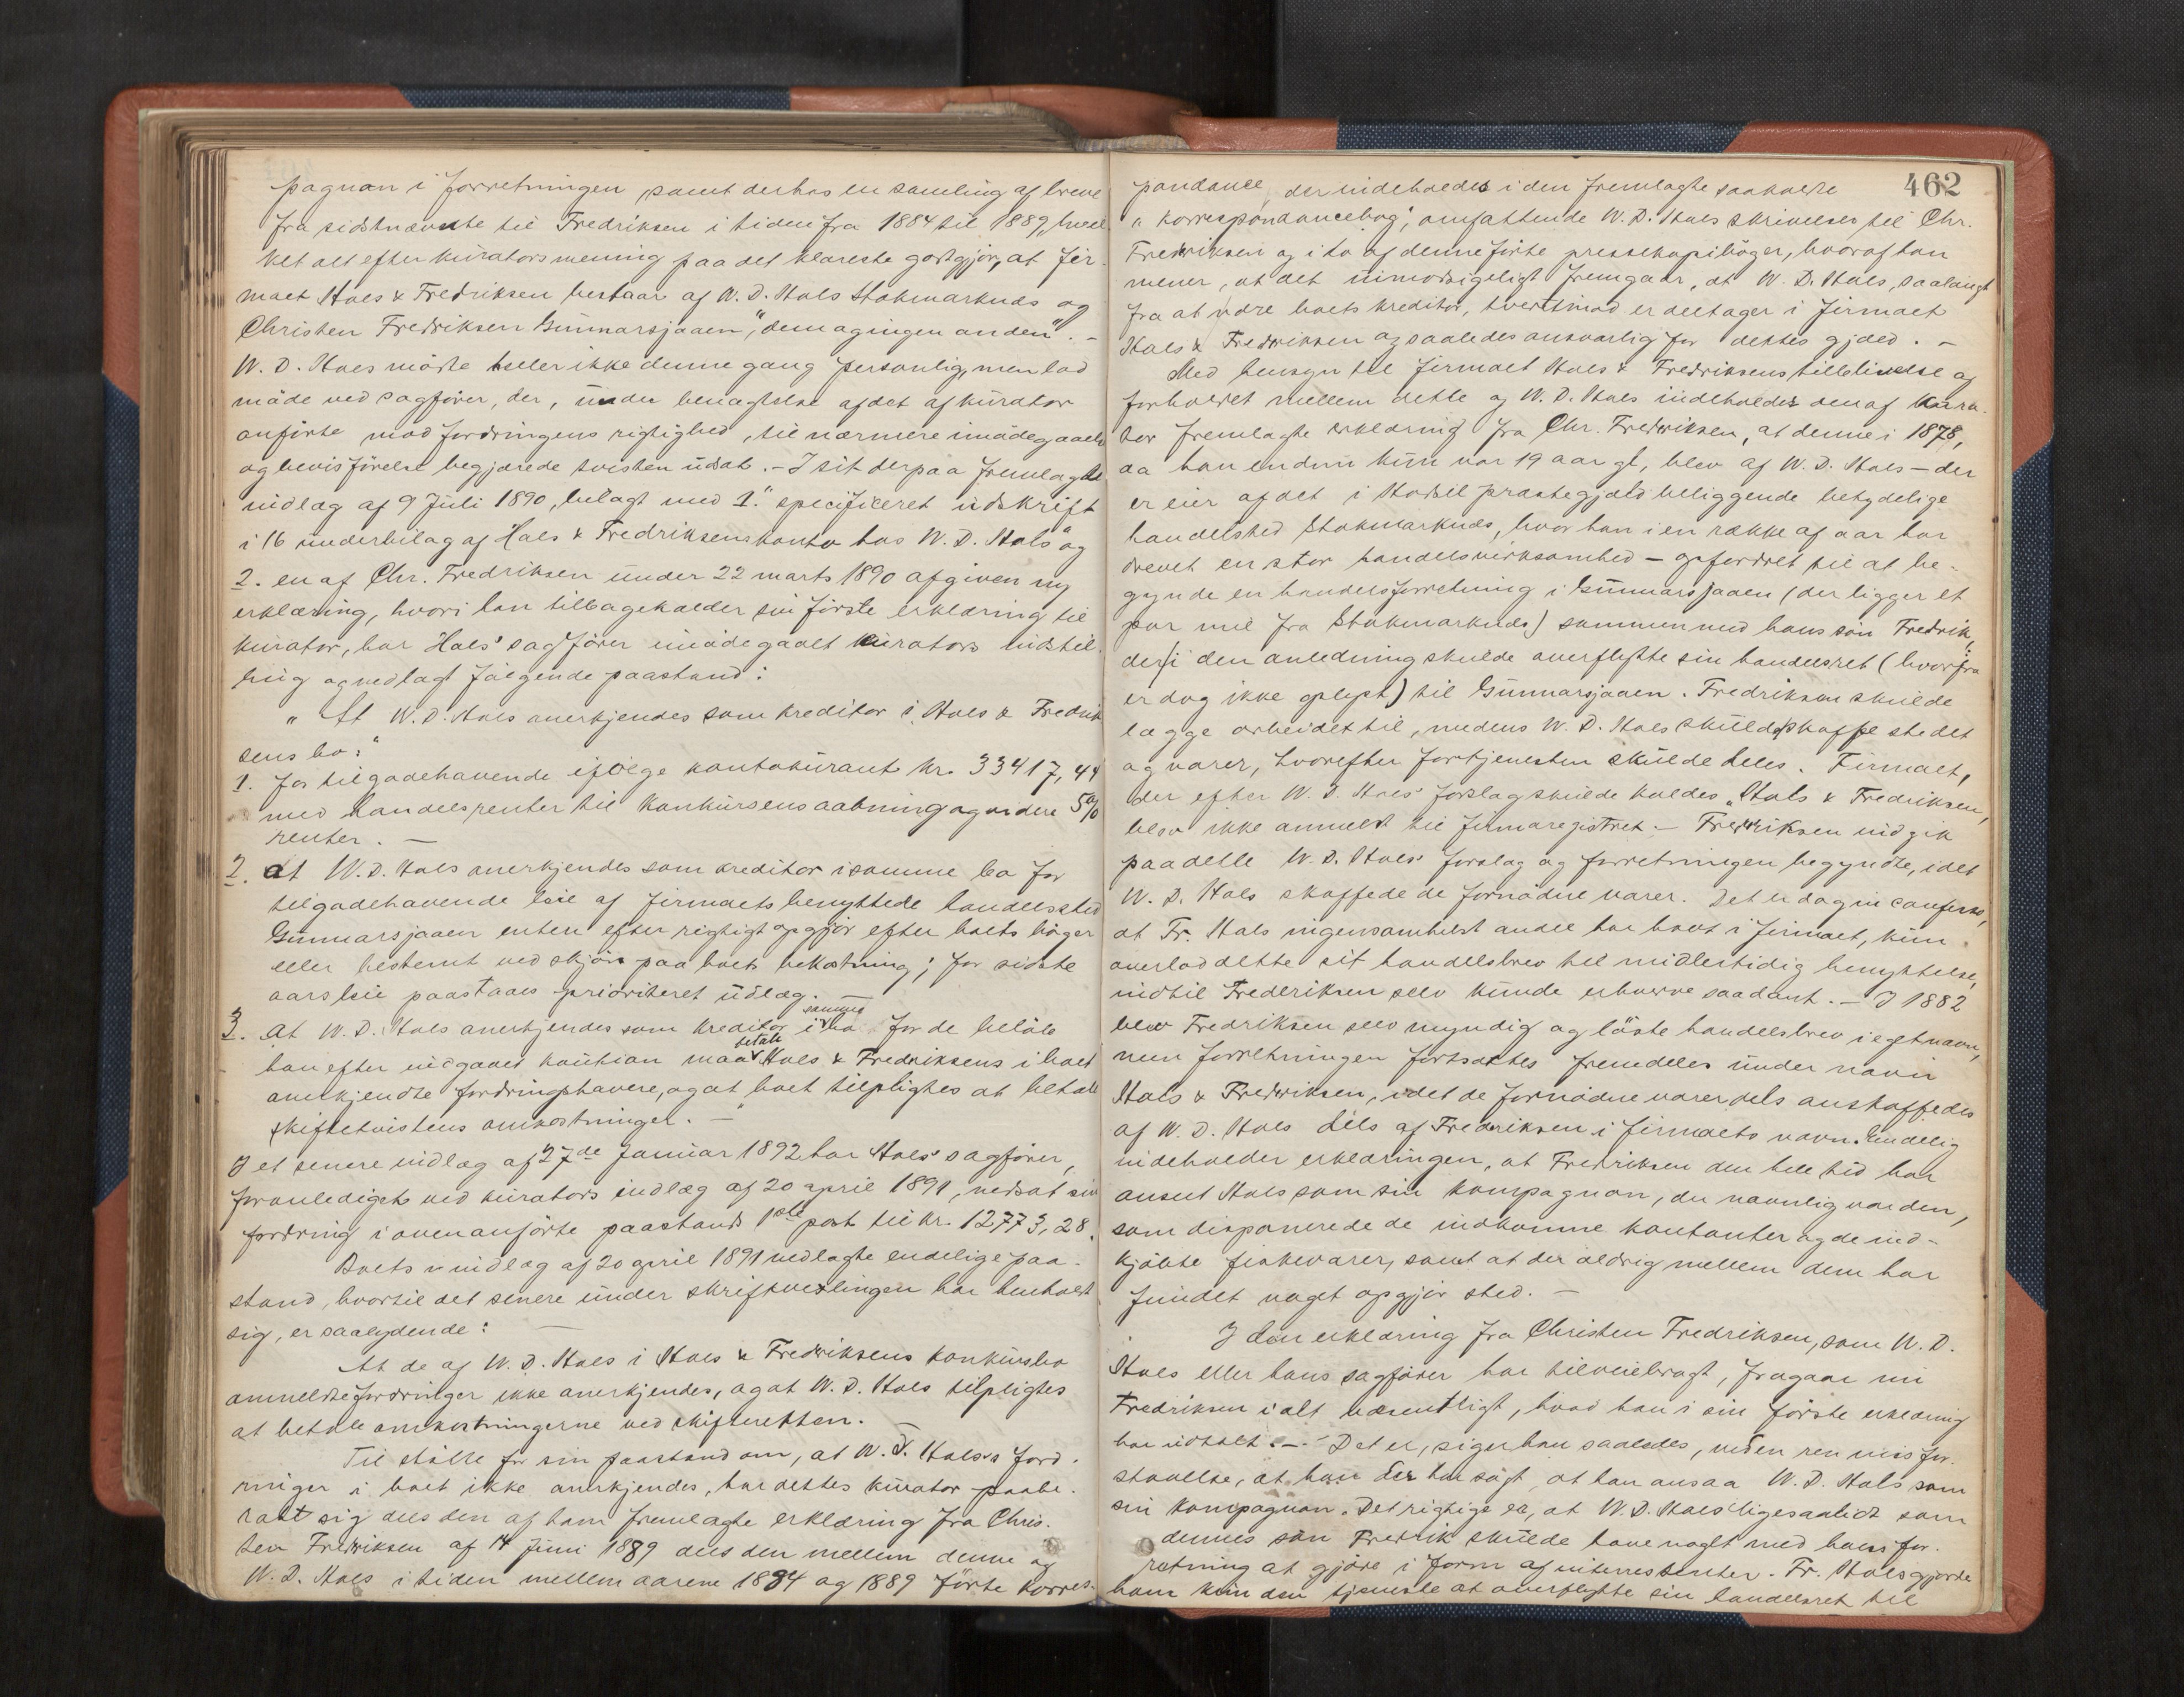 pagnon i forretningen, samt derhos en samling af breve
fra sidstnævnte til Fredriksen i tiden fra 1884 til 1889, hvil
ket alt efter kurators mening paa det klareste godtgjør, at fir-
maet Hals & Fredriksen bestaar af W. D. Hals Stokmarknes og
Christen Fredriksen Gunnarsjaaen, "dem og ingen anden". -
W. D. Hals mødte heller ikke denne gang personlig, men lod
møde ved sagfører, der, under benægtelse af det af kurator
anførte mod fordringens rigtighed, til nærmere imødegaaelse
og bevisførelse begjærede tvisten udsat. - I sit derpaa fremlagte
indlæg af 9 Juli 1890, bilagt med 1." specificeret udskrift
i 16 underbilag af Hals & Fredriksens konto hos W. D. Hals" og
2. en af Chr. Fredriksen under 22 marts 1890 afgiven ny
erklæring, hvori han tilbagekalder sin første erklæring til
kurator, har Hals' sagfører imødegaaet kurators indstil-
ling og nedlagt følgende paastand:
" At W. D. Hals anerkjendes som kreditor i Hals & Fredrik
sens bo:"
1. for tilgodehavende ifølge kontokurant kr. 33417,44
med handelsrenter til konkursens aabning og videre 5%
renter. -
2. at W. D. Hals anerkjendes som kreditor i samme bo for
tilgodehavende leie af firmaets benyttede handelssted
Gunnarsjaaen enten efter rigtigt opgjør efter boets bøger
eller bestemt ved skjøn paa boets bekostning; for sidste
aars leie paastaaes prioriteret udlæg. -
3. at W. D. Hals anerkjendes som kreditor i samme bo for de beløb
han efter indgaaet kaution maa betale Hals & Fredriksens i boet
anerkjendte fordringshavere, og at boet tilpligtes at betale
skiftetvistens omkostninger. -"
I et senere indlæg af 27de Januar 1892 har Hals' sagfører,
foranlediget ved kurators indlæg af 20 april 1891, nedsat sin
fordring i ovenanførte paastands 1ste post til kr. 12773,28.
Boets i indlæg af 20 april 1891 nedlagte endelige paa-
stand, hvortil det senere under skriftvexlingen har henholdt
sig, er saalydende: -
At de af W. D. Hals i Hals & Fredriksens konkursbo
anmeldte fordringer ikke anerkjendes, og at W. D. Hals tilpligtes
at betale omkostningerne ved skifteretten. -
Til støtte for sin paastand om, at W. D. Hals's ford-
ringer i boet ikke anerkjendes, har dettes kurator paabe-
raabt sig dels den af ham fremlagte erklæring fra Chris-
ten Fredriksen af 14 Juni 1889 dels den mellem denne og
W. D. Hals i tiden mellem aarene 1884 og 1889 førte korres-
462
pondance, der indeholdes i den fremlagte saakaldte
"korrespondancebog", omfattende W. D. Hals skrivelser til Chr.
Fredriksen og i to af denne førte pressekopibøger, hvoraf han
mener, at det uimodsigeligt fremgaar, at W. D. Hals, saalangt
fra at være boets kreditor, tvertimod er deltager i firmaet
Hals & Fredriksen og saaledes ansvarlig for dettes gjæld. -
Med hensyn til firmaet Hals & Fredriksens tilblivelse og
forholdet mellem dette og W. D. Hals indeholder den af kura-
tor fremlagte erklæring fra Chr. Fredriksen, at denne i 1878,
da han endnu kun var 19 aar gl, blev af W. D. Hals - der
er eier af det i Hadsel præstegjæld beliggende betydelige
handelssted Stokmarknes, hvor han i en række af aar har
drevet en stor handelsvirksomhed - opfordret til at be-
gynde en handelsforretning i Gunnarsjaaen (der ligger et
par mil fra Stokmarknes) sammen med hans søn Fredrik,
der i den anledning skulde overflytte sin handelsret (hvorfra
er dog ikke oplyst) til Gunnarsjaaen. Fredriksen skulde
lægge arbeidet til, medens W. D. Hals skulde skaffe stedet
og varer, hvorefter fortjenesten skulde deles. Firmaet,
der efter W. D. Hals' forslag skulde kaldes "Hals & Fredriksen,
blev ikke anmeldt til firmaregistret. - Fredriksen indgik
paa dette W. D. Hals' forslag og forretningen begyndte, idet
W. D. Hals skaffede de fornødne varer. Det er dog in confesso,
at Fr. Hals ingensomhelst andel har havt i firmaet, kun
overlod dette sit handelsbrev til midlertidig benyttelse,
indtil Frederiksen selv kunde erhverve saadant. - I 1882
blev Fredriksen selv myndig og løste handelsbrev i eget navn,
men forretningen fortsattes fremdeles under navn
Hals & Fredriksen, idet de fornødne varer dels anskaffedes
af W. D. Hals dels af Fredriksen i firmaets navn. Endelig
indeholder erklæringen, at Fredriksen den hele tid har
anset Hals som sin kompagnon, der navnlig var den,
som disponerede de indkomne kontanter og de ind-
kjøbte fiskevarer, samt at der aldrig mellem dem har
fundet noget opgjør sted. -
I den erklæring fra Christen Fredriksen, som W. D.
Hals eller hans sagfører har tilveiebragt, fragaar nu
Fredriksen i alt væsentligt, hvad han i sin første erklæring
har udtalt. - Det er, siger han saaledes, uden ren misfor-
staaelse, at han der har sagt, at han ansaa W. D. Hals som
sin kompagnon. Det rigtige er, at W. D. Hals ligesaalidt som
dennes søn Fredrik skulde have noget med hans for-
retning at gjøre i form af interessenter. Fr. Hals gjorde
ham kun den tjeneste at overflytte sin handelsret til